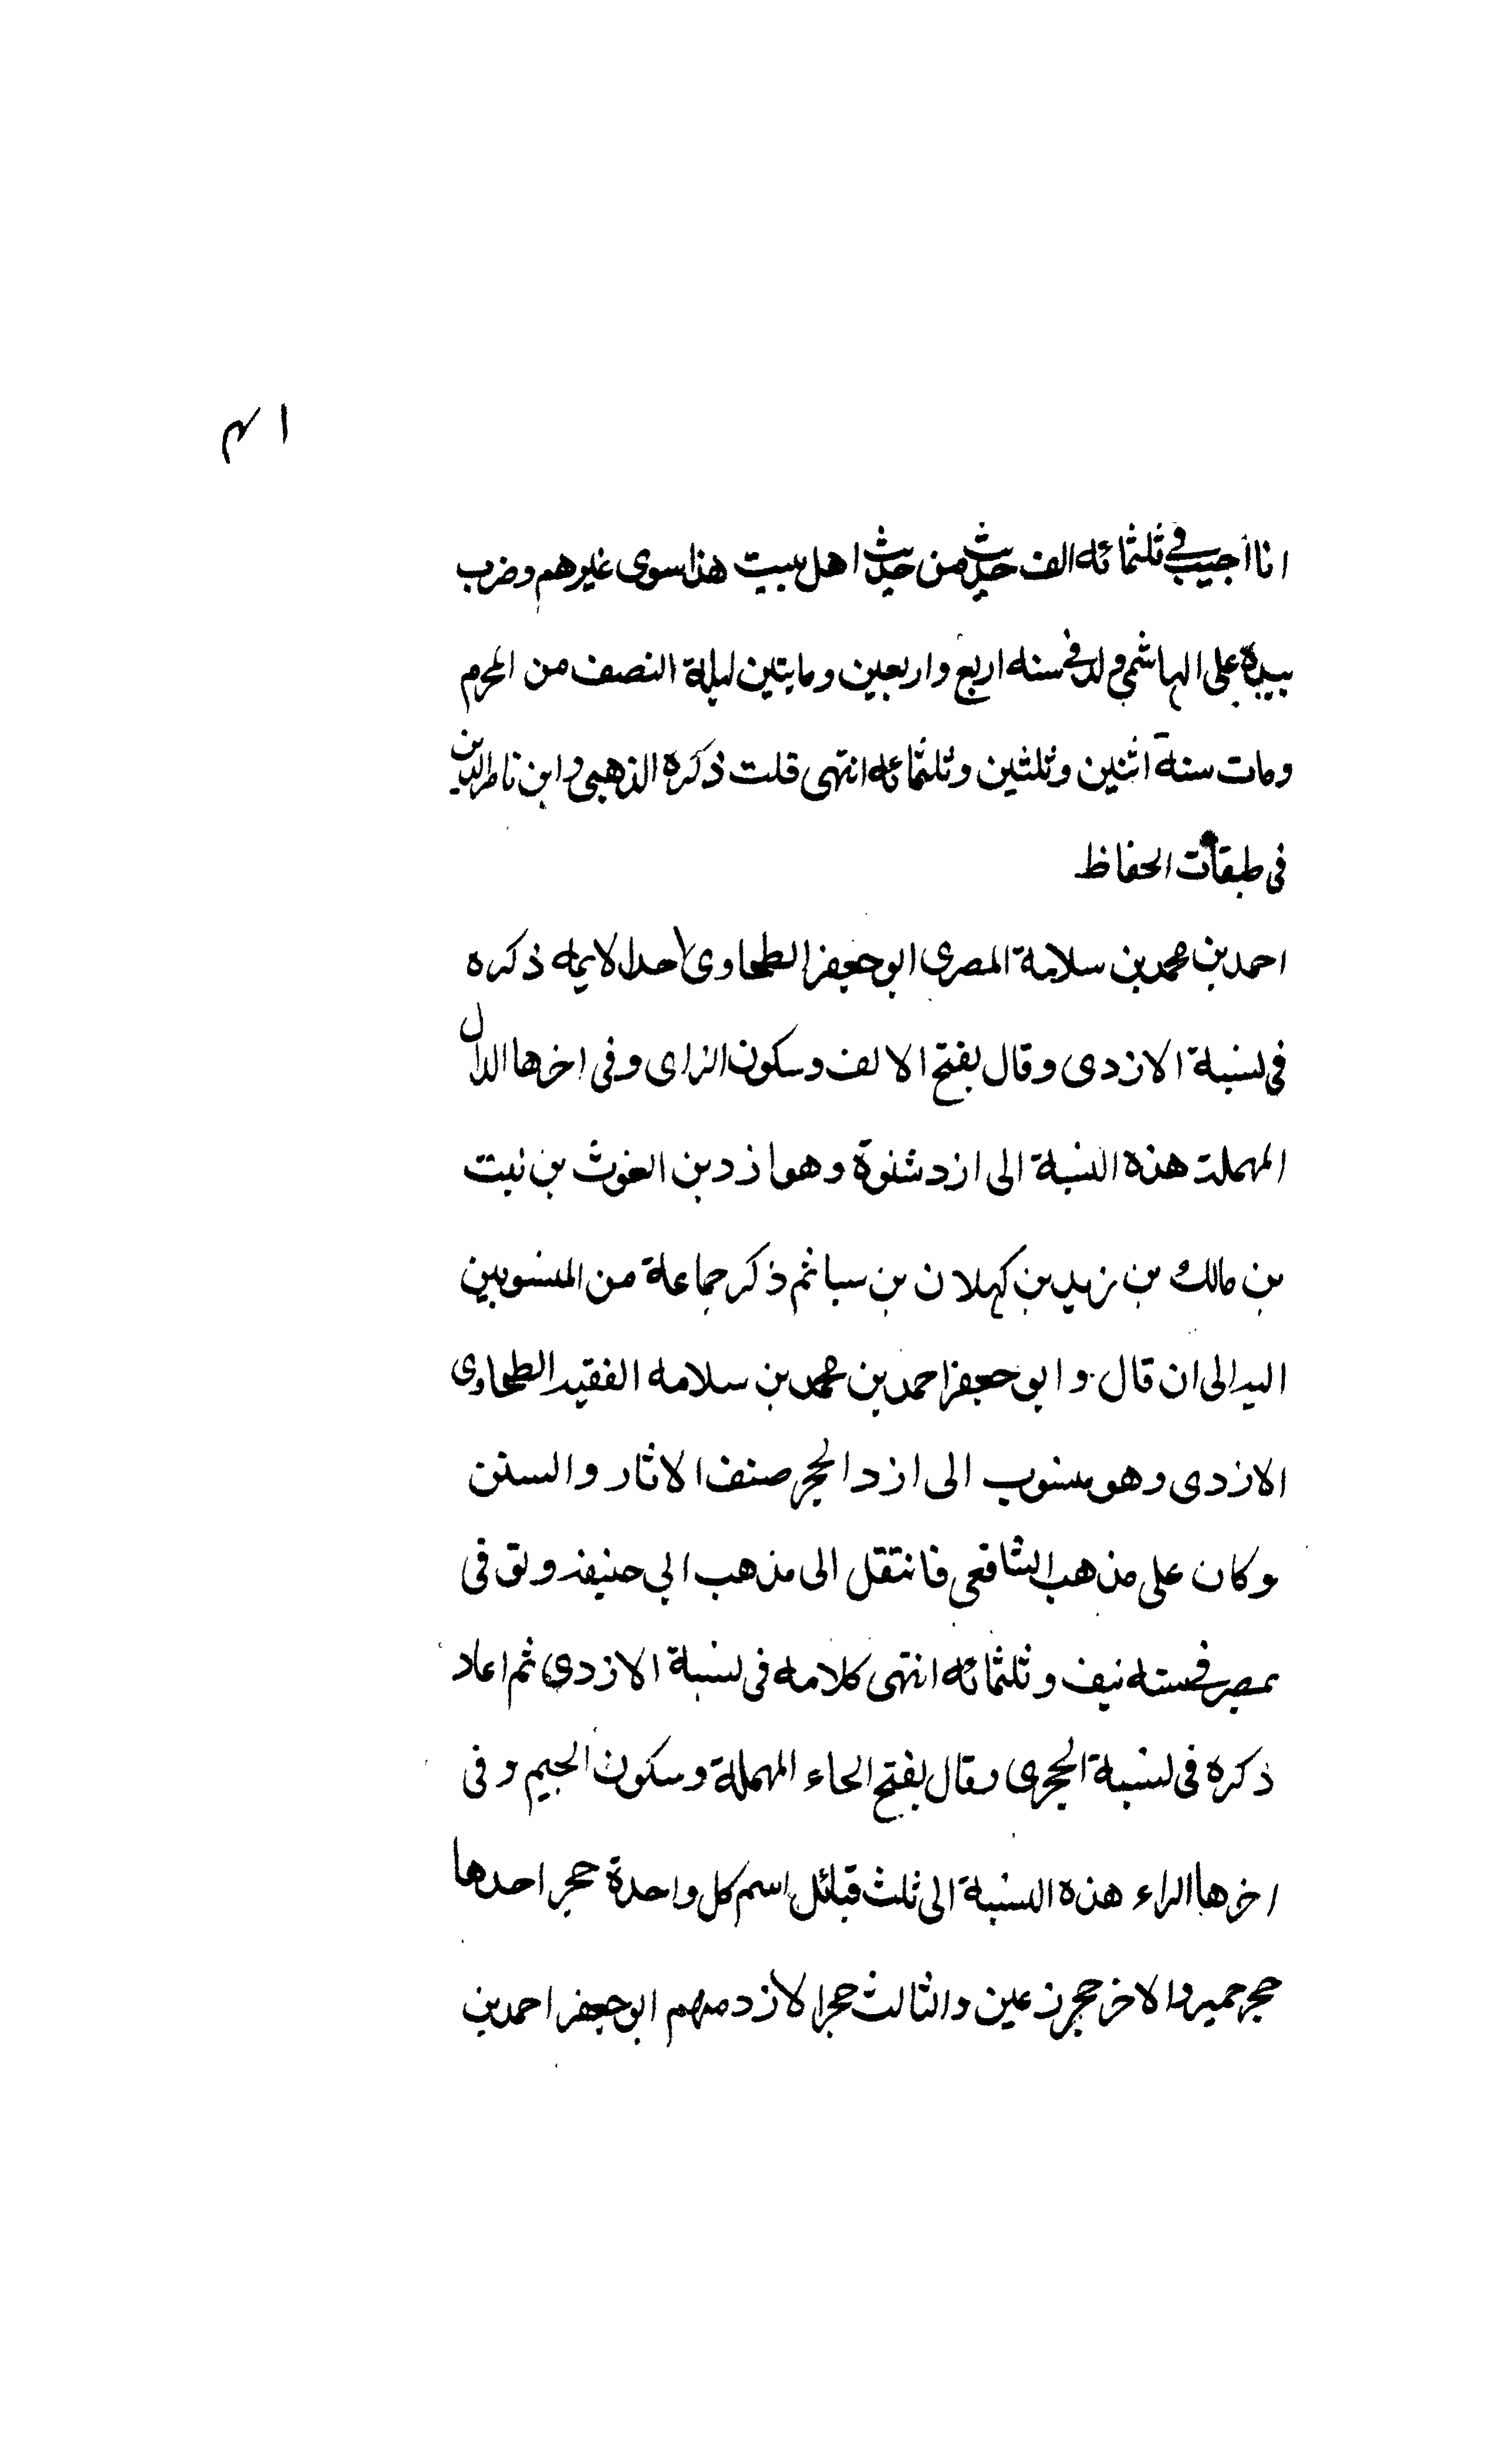 ٤١
انا أجيب في ثلثمائه الف حديث من حديث اهل بيت هذا سوى غيرهم وضرب
بيده على الهاشمي ولد في سنه اربع واربعين ومايتين ليلة النصف من المحرم
ومات سنة اثنين وثلثين وثلثمائه انتهى قلت ذكره الذهبي وابن ناصر الدين
في طبقات الحفاظ
احمد بن محمد بن سلامة المصرى ابو جعفر الطحاوى احد الايمه ذكره
في نسبة الازدى وقال بفتح الالف وسكون الزاى وفى اخرها الدال
المهملت هذه النسبة الى ازد شنوة وهو ازد بن الغوث بن نبت
بن مالك بن زيد بن كهلان بن سبا ثم ذكر جماعة من المنسوبين
اليه الى ان قال وابو جعفر احمد بن محمد بن سلامه الفقيه الطحاوى
الازدى وهو منسوب الى ازد الحجر صنف الاثار والسنن
وكان على مذهب الشافعى فانتقل الى مذهب ابي حنيفه وتوفى
بمصر في سنه نيف وثلثمائه انتهى كلامه فى نسبة الازدى ثم اعاد
ذكره فى نسبة الحجرى وقال بفتح الحاء المهملة وسكون الجيم وفى
اخرها الراء هذه النسبة الى ثلث قبائل اسم كل واحدة حجر احدها
حجر حمير والاخر حجر زعين والثالث حجر الازد منهم ابو جعفر احمد بن